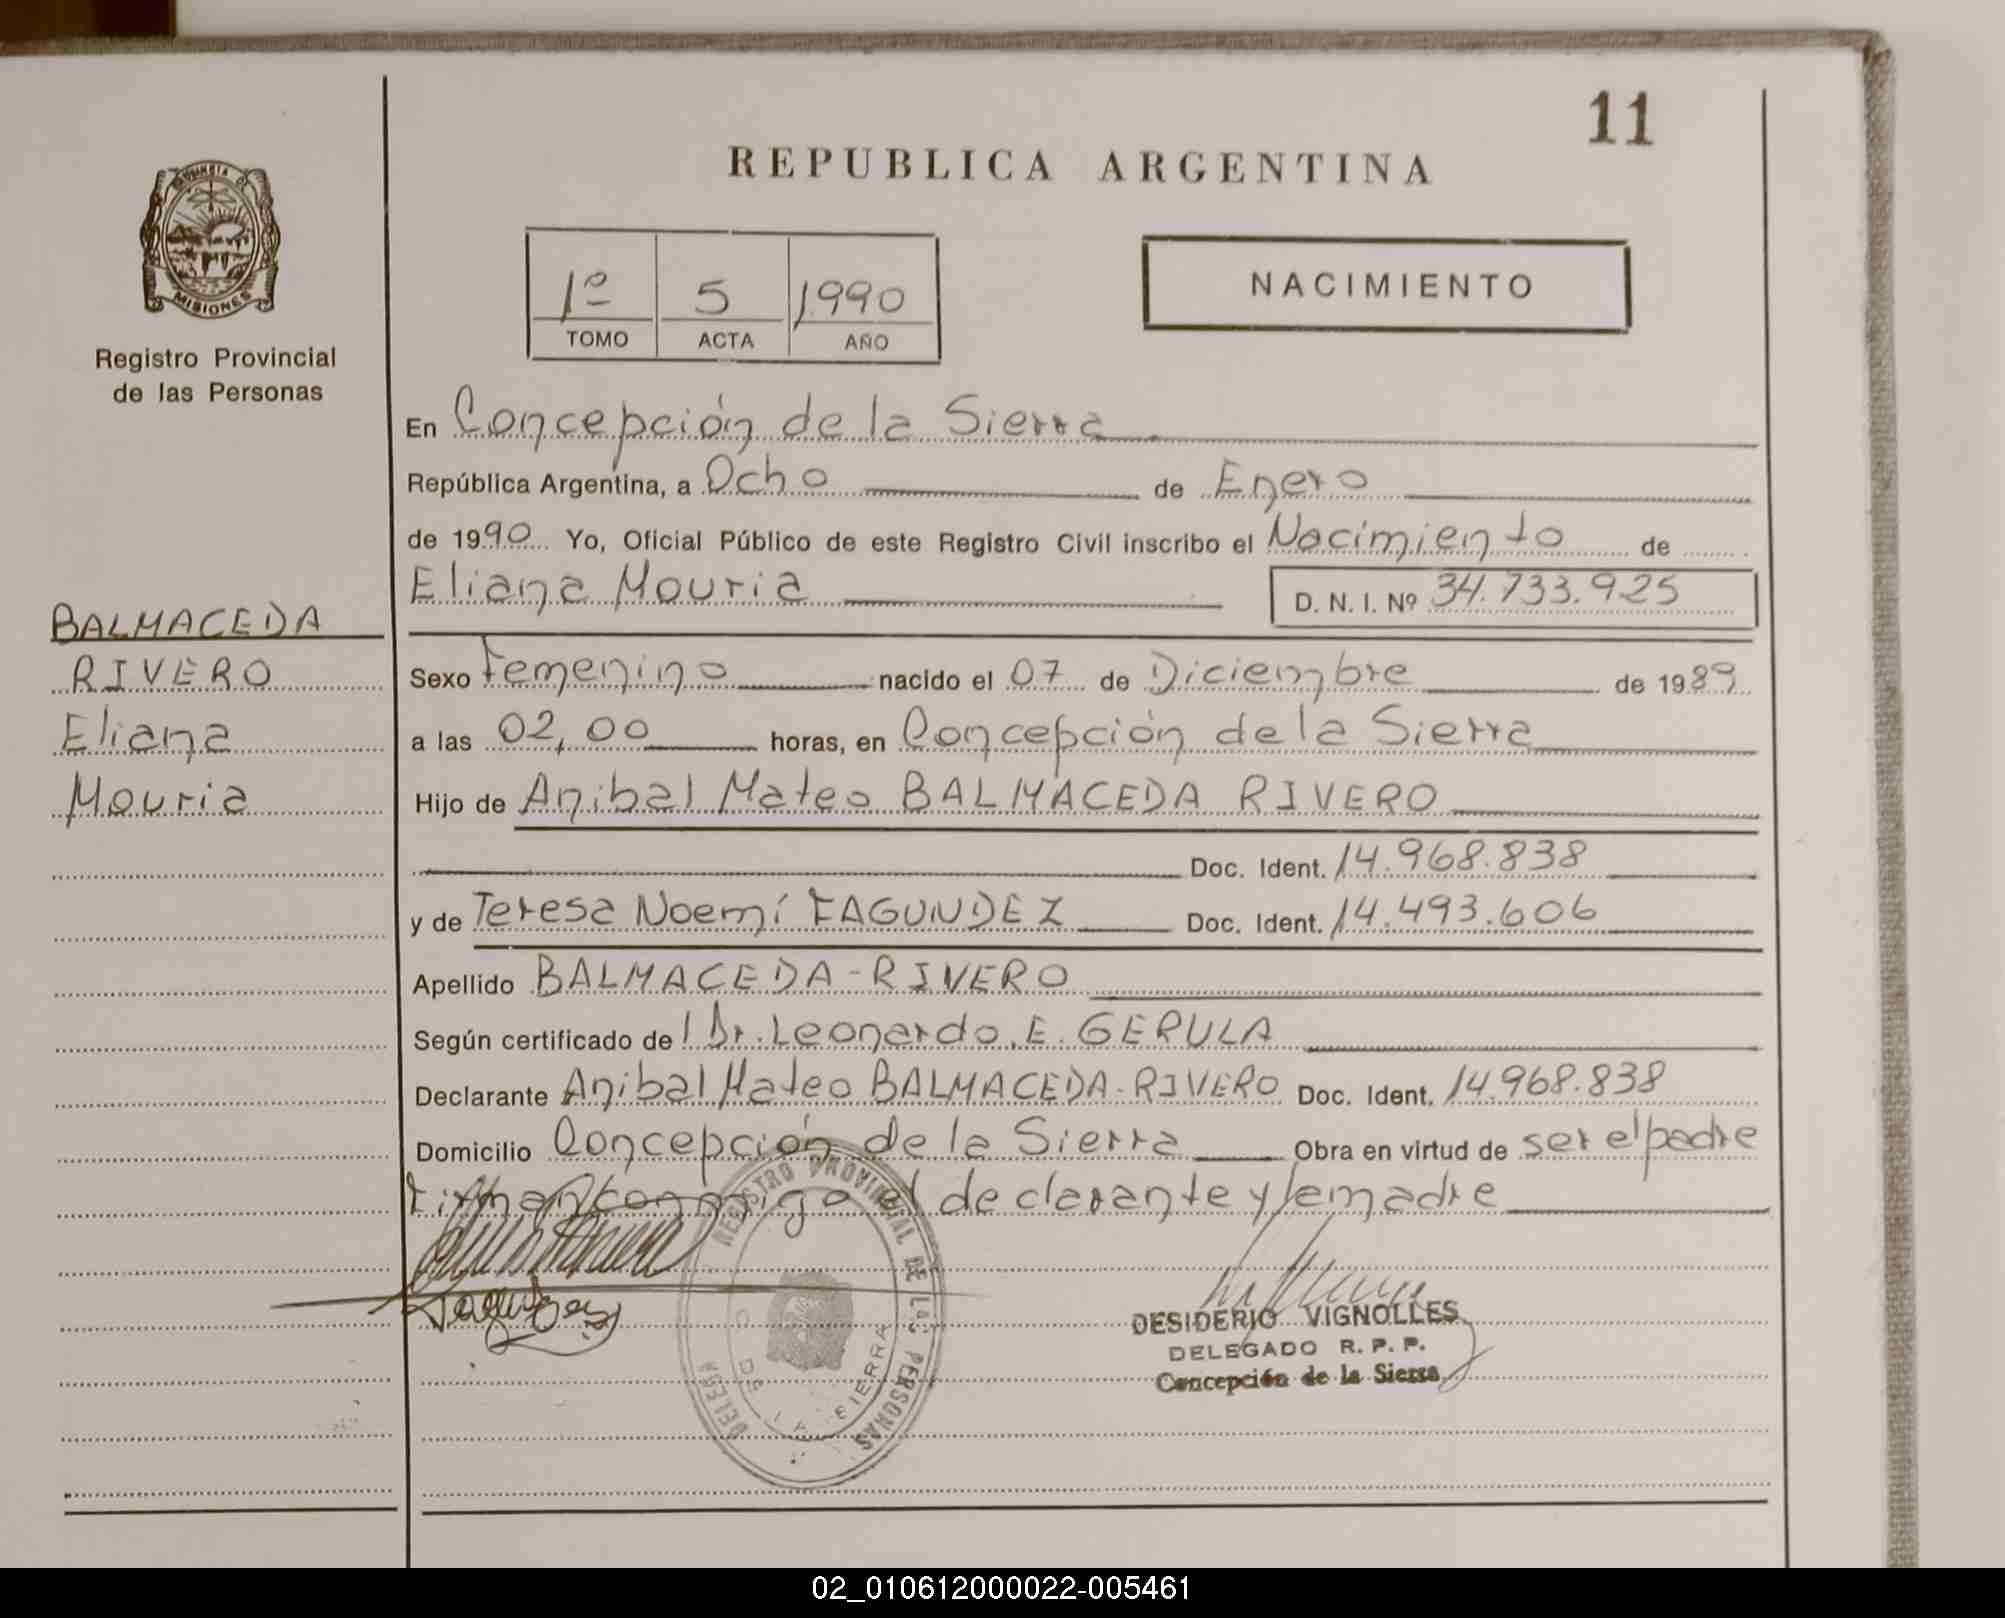 11
REPUBLICA ARGENTINA
1º 5 1990
TOMO ACTA AÑO
NACIMIENTO
MISIONES
Registro Provincial
de las Personas
En Concepción de la Sierra
República Argentina, a Ocho de Enero
de 1990 Yo, Oficial Público de este Registro Civil inscribo el Nacimiento de
Eliana Mouria D. N. I. Nº 34.733.925
BALMACEDA
RIVERO
Eliana
Mouria
Sexo Femenino nacido el 07 de Diciembre de 1989
a las 02,00 horas, en Concepción de la Sierra
Hijo de Anibal Mateo BALMACEDA RIVERO
Doc. Ident. 14.968.838
y de Teresa Noemí FAGUNDEZ Doc. Ident. 14.493.606
Apellido BALMACEDA-RIVERO
Según certificado de l Dr. Leonardo E. GERULA
Declarante Anibal Mateo BALMACEDA-RIVERO Doc. Ident. 14.968.838
Domicilio Concepción de la Sierra Obra en virtud de ser el padre
Firman conmigo el declarante y la madre
REGISTRO PROVINCIAL DE LAS PERSONAS
DE LA SIERRA
DESIDERIO VIGNOLLES
DELEGADO R. P. P.
Concepción de la Sierra
02_010612000022-005461